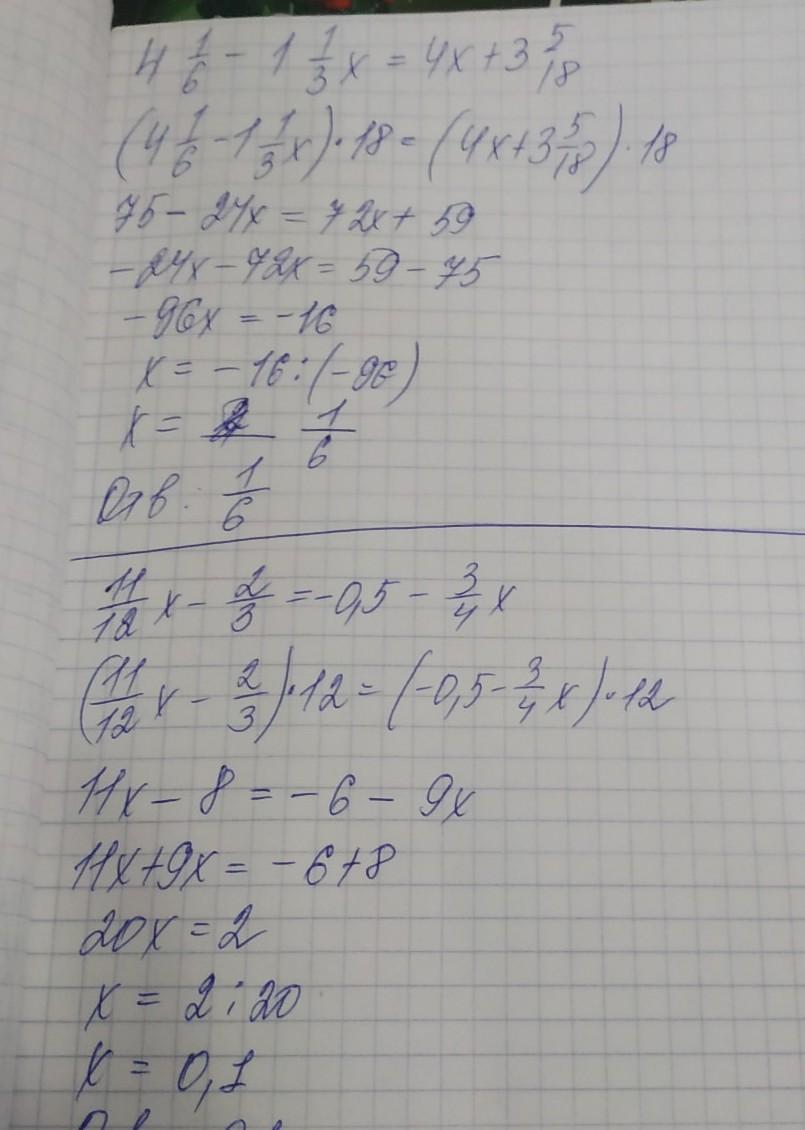 4 1/6 - 1 1/3 x = 4x + 3 5/18
(4 1/6 - 1 1/3 x) · 18 = (4x + 3 5/18) · 18
75 - 24x = 72x + 59
-24x - 72x = 59 - 75
-96x = -16
x = -16 : (-96)
x = 1/6
Отв: 1/6
11/12 x - 2/3 = -0,5 - 3/4 x
(11/12 x - 2/3) · 12 = (-0,5 - 3/4 x) · 12
11x - 8 = -6 - 9x
11x + 9x = -6 + 8
20x = 2
x = 2 : 20
x = 0,1